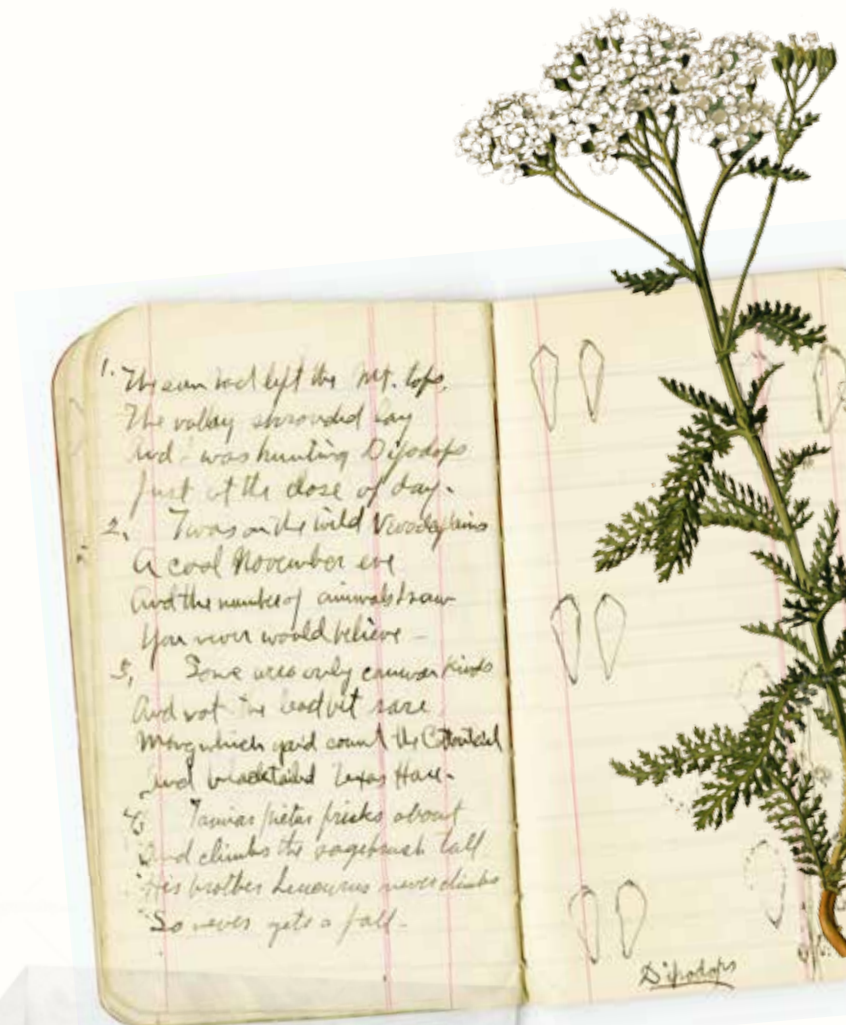 1. The sun had left the Mt. tops,
The valley shrouded lay
And I was hunting Dipodops
Just at the close of day.
2. Twas on the wild Nevada plains
A cool November eve
And the number of animals I saw
You never would believe –
3. Some were only common kinds
And not the least bit rare
Among which you'd count the Cottontail
And blacktailed Texas Hare.
4. Tamias pictus frisks about
And climbs the sagebrush tall
His brother leucurus never climbs
So never gets a fall.
Dipodops